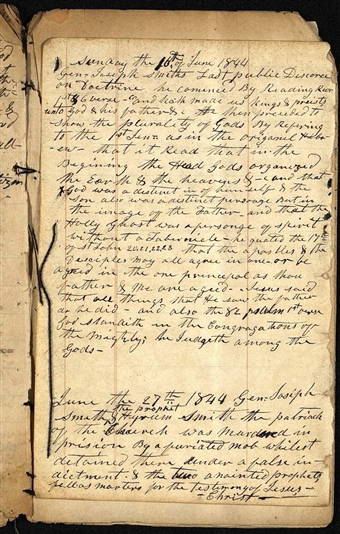 Sunday the 16th of June 1844
Gen= Joseph Smiths Last public Discorce
on Doctrine he comenced By Reading Rev
1st & 6 verse - and hath made us Kings & priests
unto God & his father & c He then preceded to
Show the pluralety of Gods By Refering
to the 1st Gen= as in the origanel Hebr-
ew - that it Read that in the
Begining the Head Gods organized
the Earth & the heavens & - and that
God was a distinct in of himself & the
Son also was a distinct personage But in
the image of the Father - and that the
Holly Ghost was a personge of spirit
without a Tabernicle - he quoted the 17th
of St John 20,21,22,23 that the apostles & the
Desciples may all agree in one - or be
agreed in the one principal as thou
father & Me are agreed - Jesus said
that all things that He saw the father
do he did - and also the 82 psalm 1st vers
God standith in the Congragations off
the Mighty; he Judgeth among the
Gods -
June the 27th 1844 Gen= Josiph
Smith the prophet & Hyrum Smith the patriach
of the Church was Murdered in
prision By a mob whilest
detained there under a palse in
dictment - & the two anointed prophets
fell as marters for the testimony of Jesus -
- Christ -